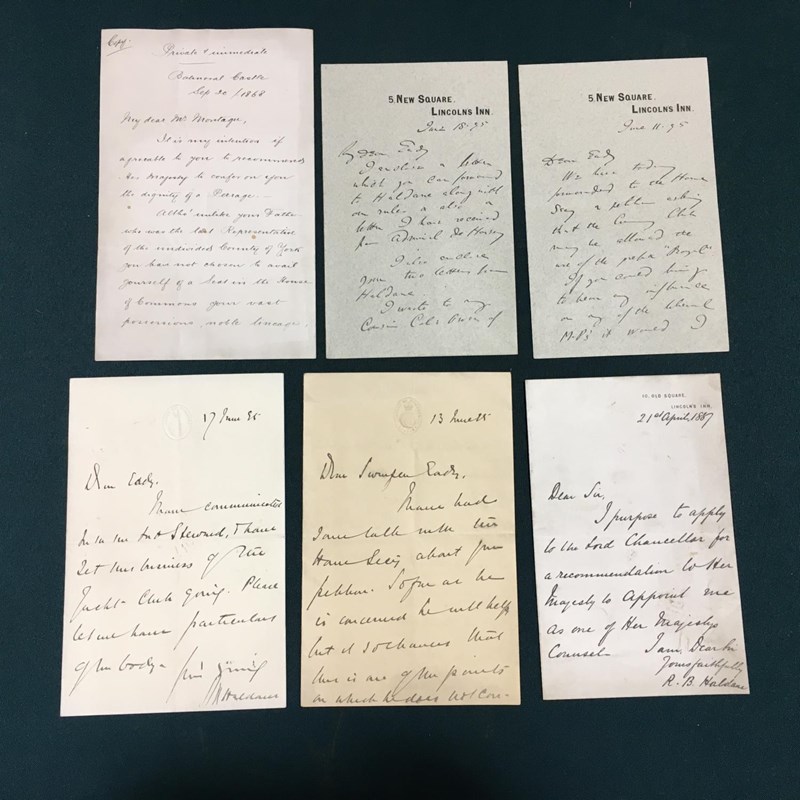 Copy.
Private & immediate
Balmoral Castle
Sep 20/1868
My dear Mr Montagu,
It is my intention if
agreeable to you to recommend
Her Majesty to confer upon you
the dignity of a Peerage. —
Altho' unlike your Father
who was the last Representative
of the undivided County of York
you have not chosen to avail
yourself of a Seat in the House
of Commons your vast
possessions, noble lineage,
5, New Square.
Lincolns Inn.
June 15. 95
My dear Eady
I enclose a letter
which you can forward
to Haldane along with
our rules & also a
letter I have received
from Admiral de Horsey
I also enclose
your two letters from
Haldane
I wrote to my
Cousin Col. Owen
5, New Square.
Lincolns Inn.
June 11. 95
Dear Eady
We have today
forwarded to the Home
Secy a petition asking
that the Club
may be allowed the
use of the prefix "Royal"
If you could bring
to bear any influence
on any of the liberal
M.P's it would
17 June 95
Dear Eady.
I have communicated
I have
set this business of the
Yacht Club going. Please
let me have particulars
of the body.
Haldane
13 June 95
Dear Swinfen Eady,
I have had
some talk with the
Home Secy about your
petition. So far as he
is concerned he will help
but it so chances that
this is one of the points
on which he does not con-
10, Old Square,
Lincoln's Inn.
21st April, 1887
Dear Sir,
I purpose to apply
to the Lord Chancellor for
a recommendation to Her
Majesty to appoint me
as one of Her Majesty's
Counsel.
I am, Dear Sir
Yours faithfully
R. B. Haldane